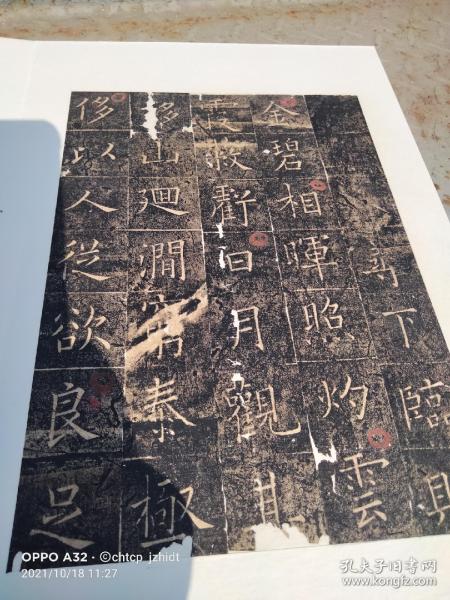 尋下臨
金碧相暉照灼雲
霞蔽虧日月觀其
移山迴澗窮泰極
侈以人從欲良足
OPPO A32 · ©chtcp_jzhidt
2021/10/18 11:27
孔夫子旧书网
www.kongfz.com